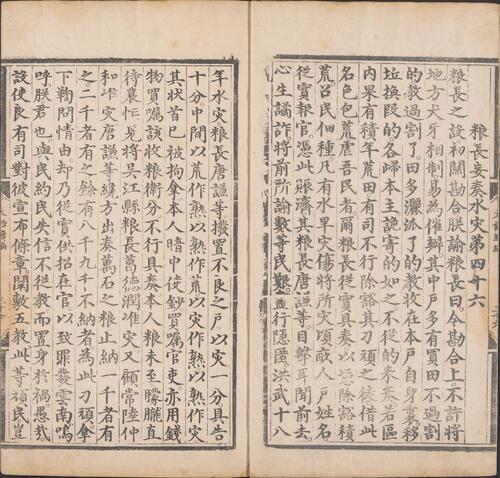 粮長妄奏水灾第四十六
粮長之設初闗勘合朕諭粮長曰今勘合上不許將
地方犬牙相制易為催辦其中戶多有買田不過割
的教過割了田多灑派了的教收在本戶自身裏移
坵換段的各歸本主詭寄的如之不從的来奏若區
内果有積年荒田有司不行除豁其刁頑之徒借此
名色包荒虐吾民者爾粮長從實具奏以憑除豁積
荒召民佃種凡有水旱灾傷將所灾頃畝人戶姓名
從實報官憑此賑濟其粮長唐謙等目擊耳聞前去
心生譎詐將前所諭數等民艱盡行隱匿洪武十八
年水灾粮長唐謙等撥置不良之戶以灾一分具告
十分中間以荒作熟以熟作荒以灾作熟以熟作灾
其狀首已被拘拿本人暗中使鈔買囑官吏亦用錢
物買囑該收粮衛分不行具奏本人粮未至朦朧直
待襄忙將吴江縣粮長葛德潤准灾又顧常陸仲
和灾唐謙等纔方出奏萬石之粮止納一千者有
之二千者有之餘有八千九千不納者為此刁頑拿
下鞫問情由却乃從實供招在官以致罪發雲南嗚
呼朕君也與民約民失信不從教而置身於禍愚哉
設使良有司對彼宣布條章開數五教此等頑民豈